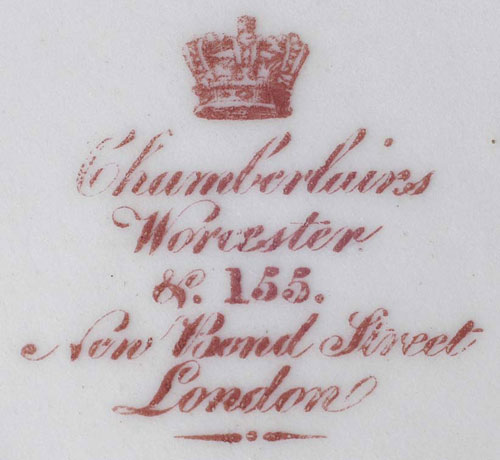 Chamberlains
Worcester
&. 155.
New Bond Street
London